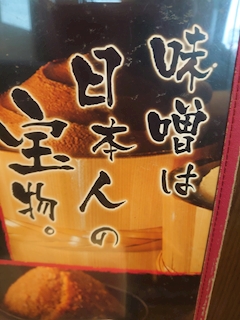 味噌は
日本人の
宝物。